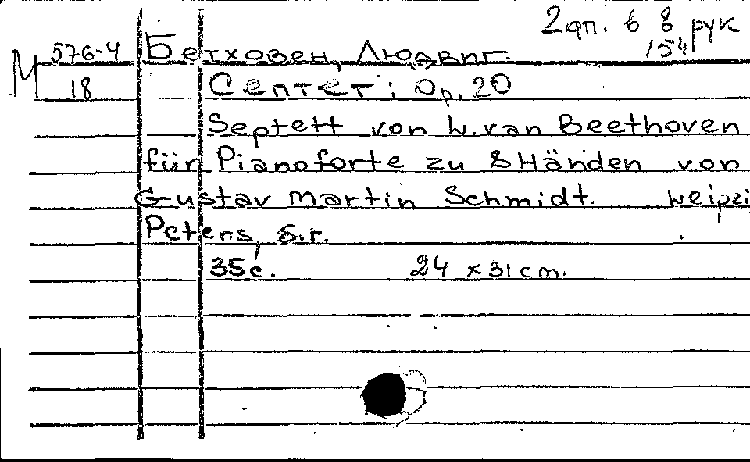 2 фп. в 8 рук
М 576-4 Бетховен, Людвиг.
18 Септет; Op. 20
Septett von L. van Beethoven
für Pianoforte zu 8 Händen von
Gustav Martin Schmidt. Leipzi
Peters, s.r.
35 с. 24 x 31 cm.